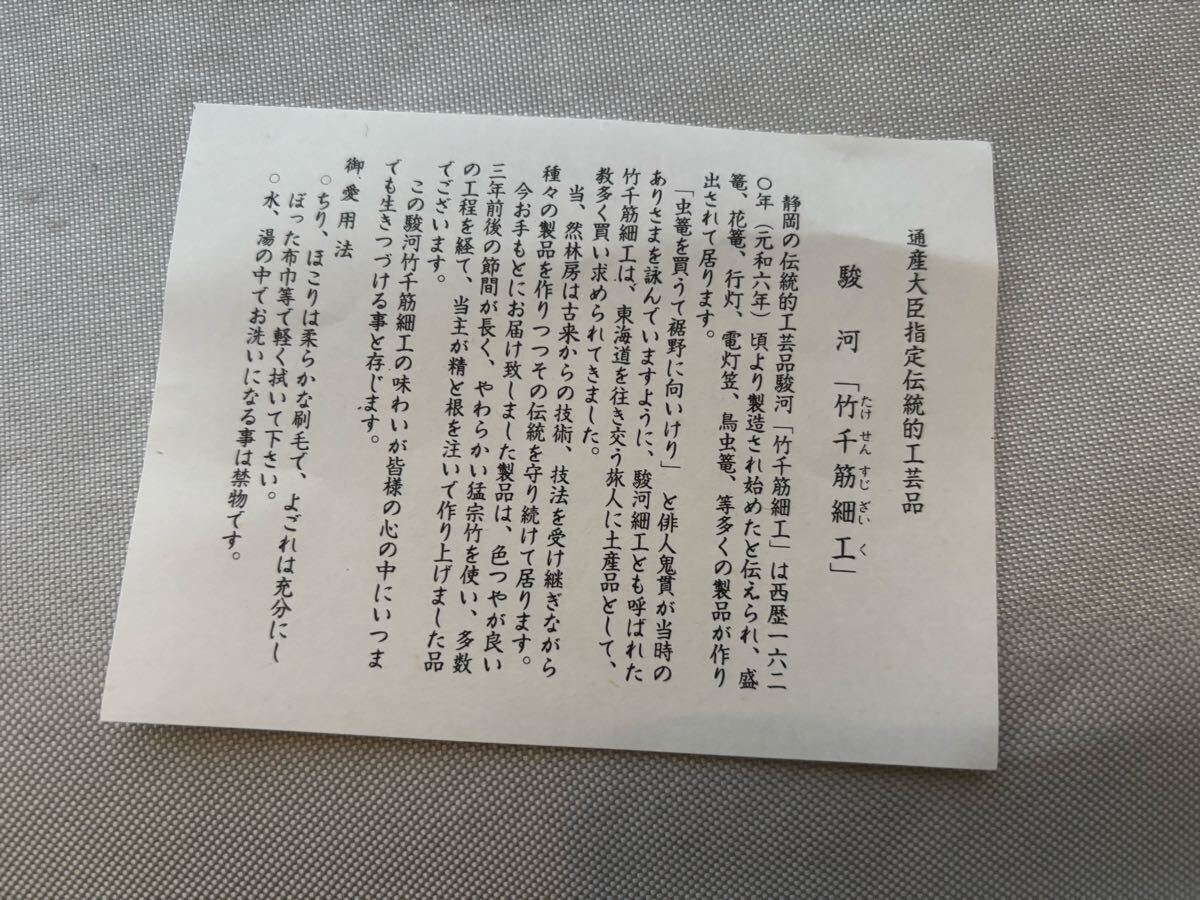 通産大臣指定伝統的工芸品
駿河「竹千筋細工」
たけせんすじざいく
静岡の伝統的工芸品駿河「竹千筋細工」は西歴一六二
〇年（元和六年）頃より製造され始めたと伝えられ、盛
篭、花篭、行灯、電灯笠、鳥虫篭、等多くの製品が作り
出されて居ります。
「虫篭を買うて裾野に向いけり」と俳人鬼貫が当時の
ありさまを詠んでいますように、駿河細工とも呼ばれた
竹千筋細工は、東海道を往き交う旅人に土産品として、
数多く買い求められてきました。
当、然林房は古来からの技術、技法を受け継ぎながら
種々の製品を作りつつその伝統を守り続けて居ります。
今お手もとにお届け致しました製品は、色つやが良い
三年前後の節間が長く、やわらかい猛宗竹を使い、多数
の工程を経て、当主が精と根を注いで作り上げました品
でございます。
この駿河竹千筋細工の味わいが皆様の心の中にいつま
でも生きつづける事と存じます。
御愛用法
○ちり、ほこりは柔らかな刷毛で、よごれは充分にし
ぼった布巾等で軽く拭いて下さい。
○水、湯の中でお洗いになる事は禁物です。